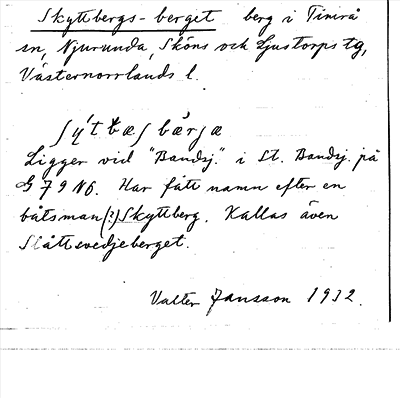 Skyttbergs-berget berg i Timrå
sn, Njurunda, Sköns och Ljustorps tg,
Västernorrlands l.
Ligger vid "Bandsj." i St. Bandsj. på
G 79 N6. Har fått namn efter en
båtsman (?) Skyttberg. Kallas även
Slåttsvedjeberget.
Valter Jansson 1932.